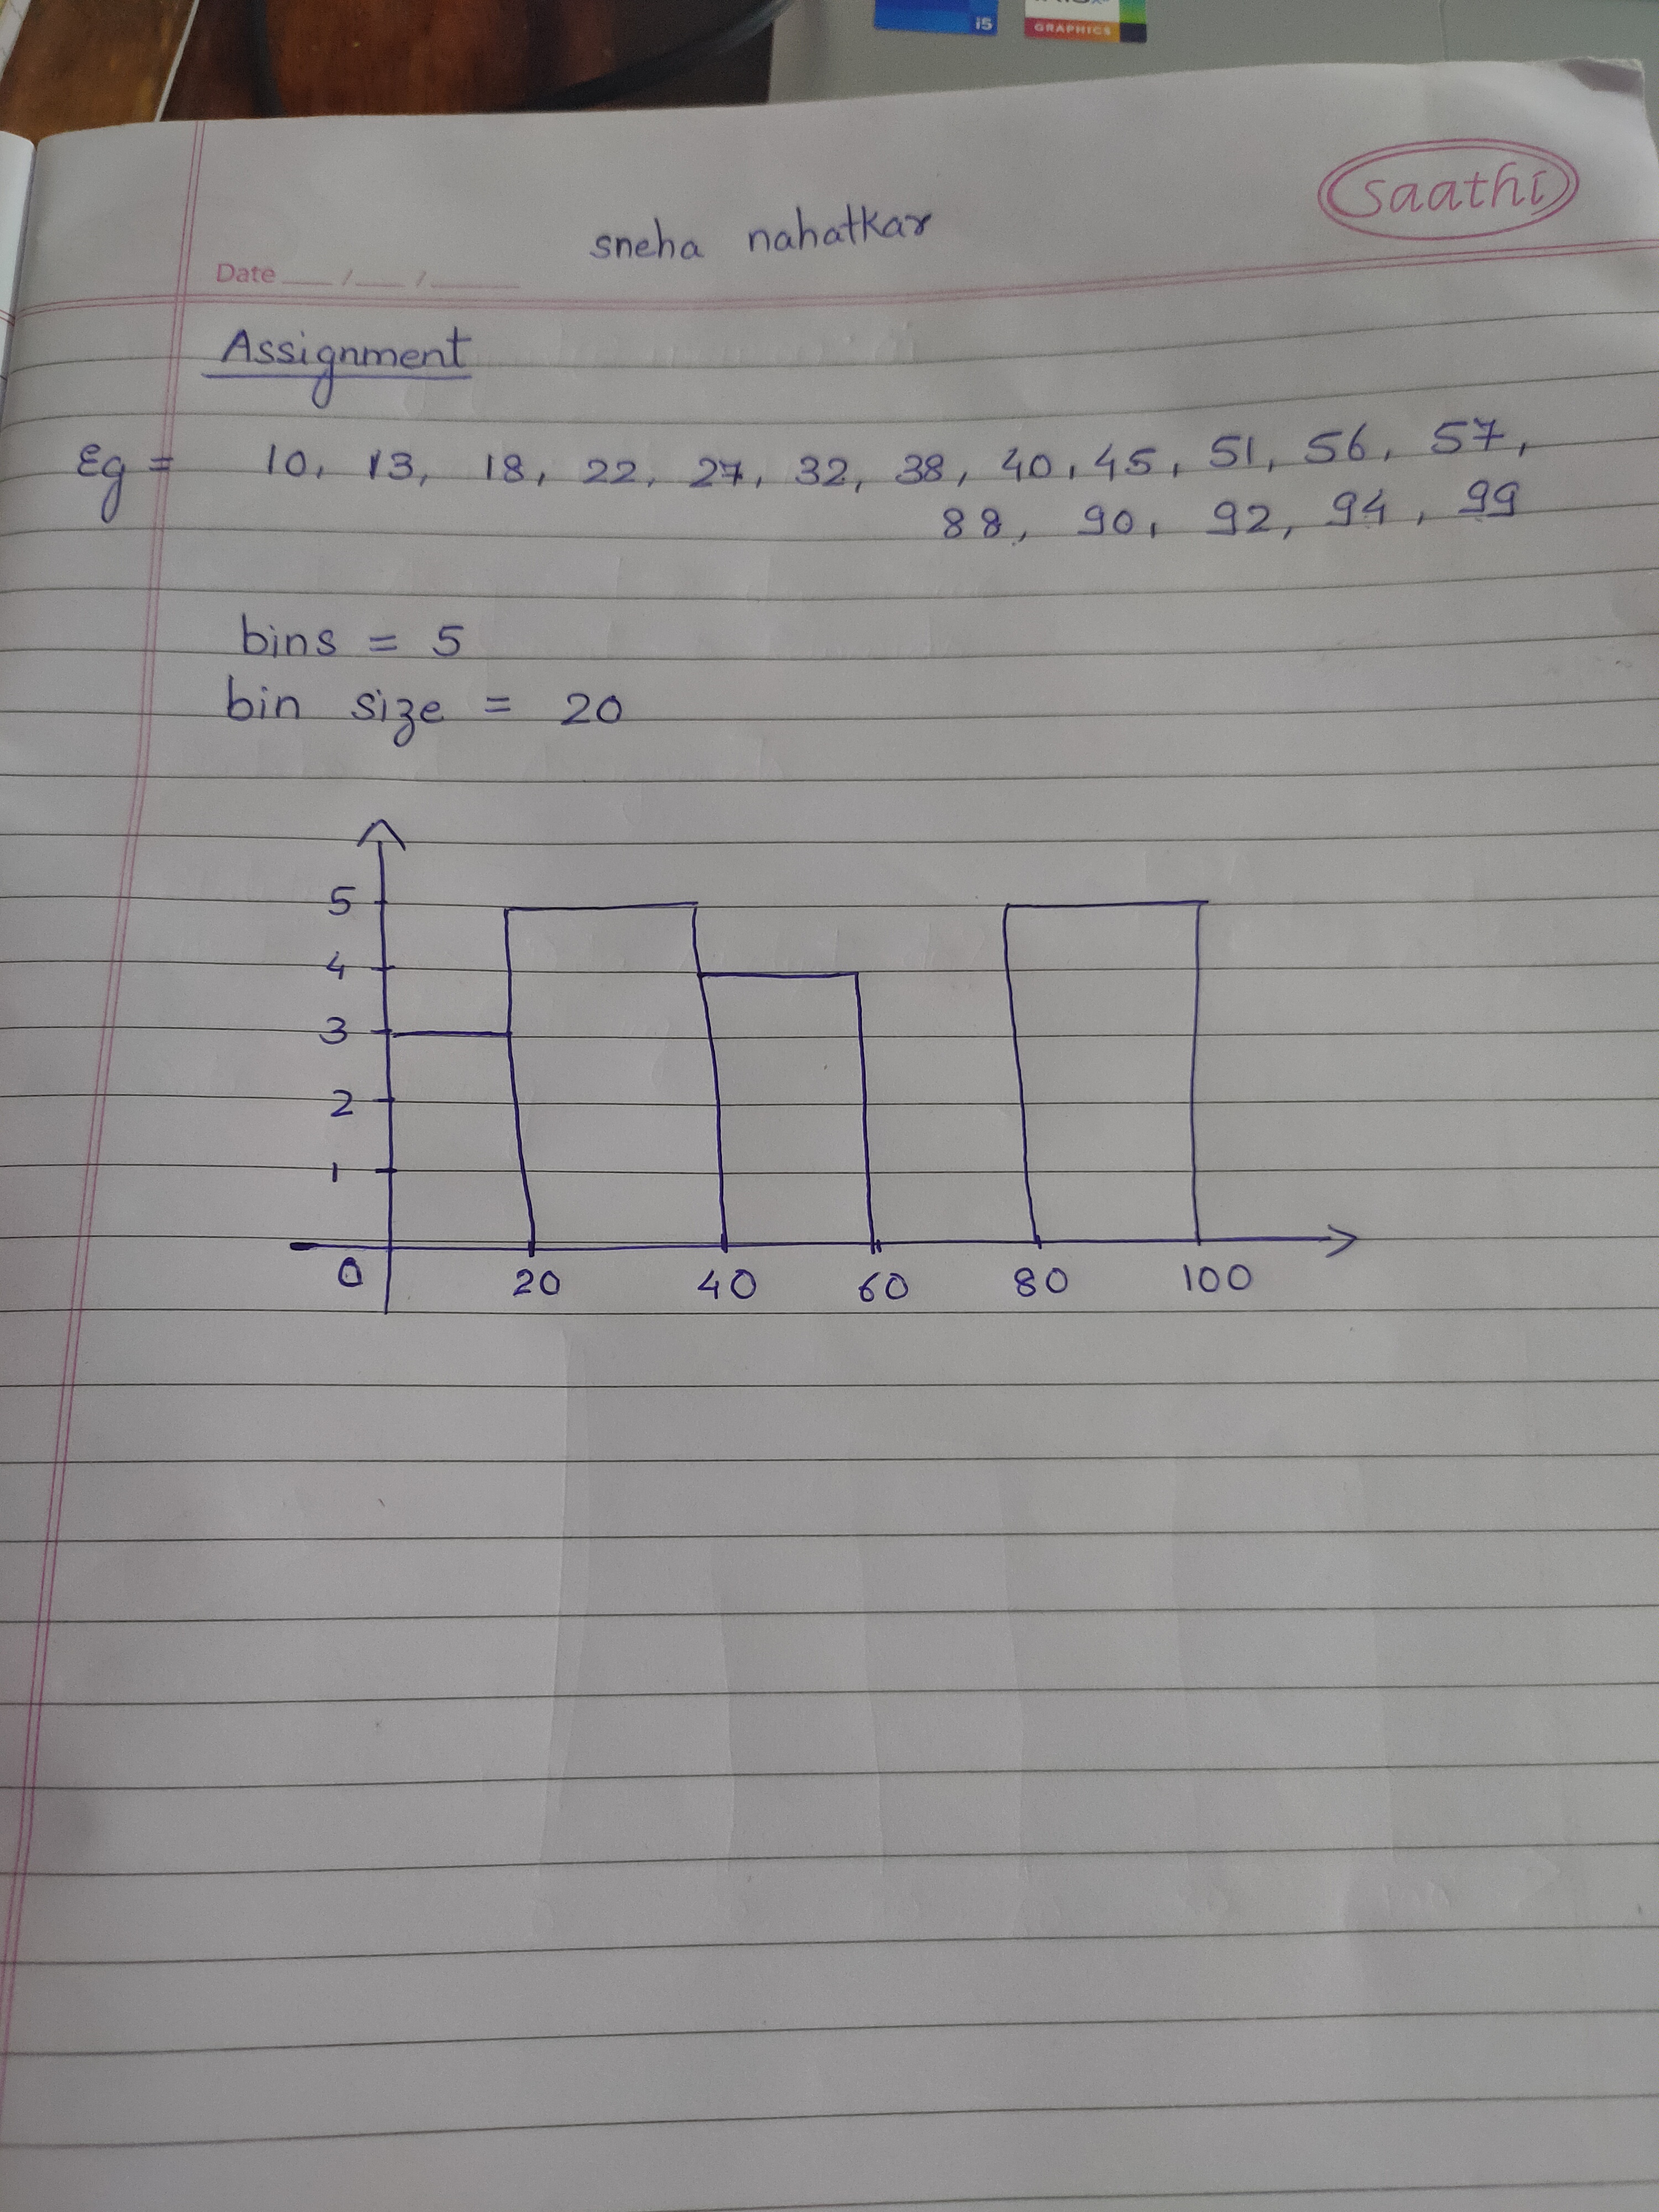 i5
GRAPHICS
saathi
sneha nahatkar
Date __/__/____
Assignment
Eg = 10, 13, 18, 22, 27, 32, 38, 40, 45, 51, 56, 57,
88, 90, 92, 94, 99
bins = 5
bin size = 20
5
4
3
2
1
0 20 40 60 80 100